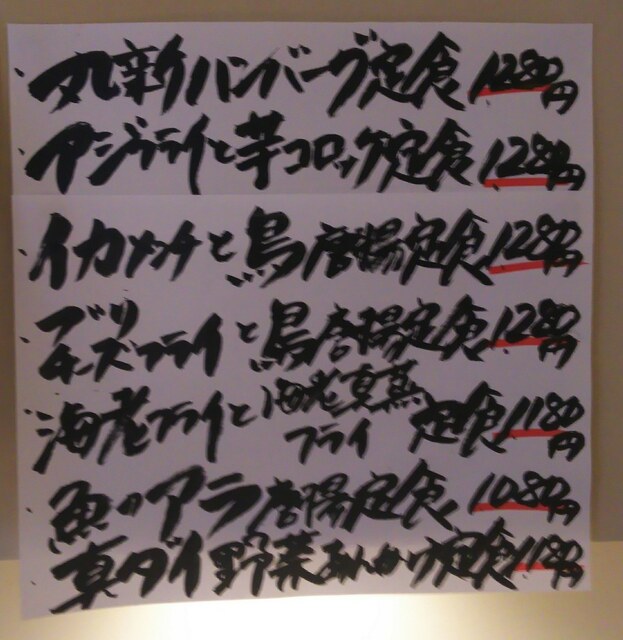 丸新ハンバーグ定食 1280円
アジフライと芋コロッケ定食 1280円
イカメンチと鳥唐揚定食 1280円
ブリチーズフライと鳥唐揚定食 1280円
海老フライと海老真蒸フライ定食 1180円
魚のアラ唐揚定食 1080円
真ダイ野菜あんかけ定食 1180円